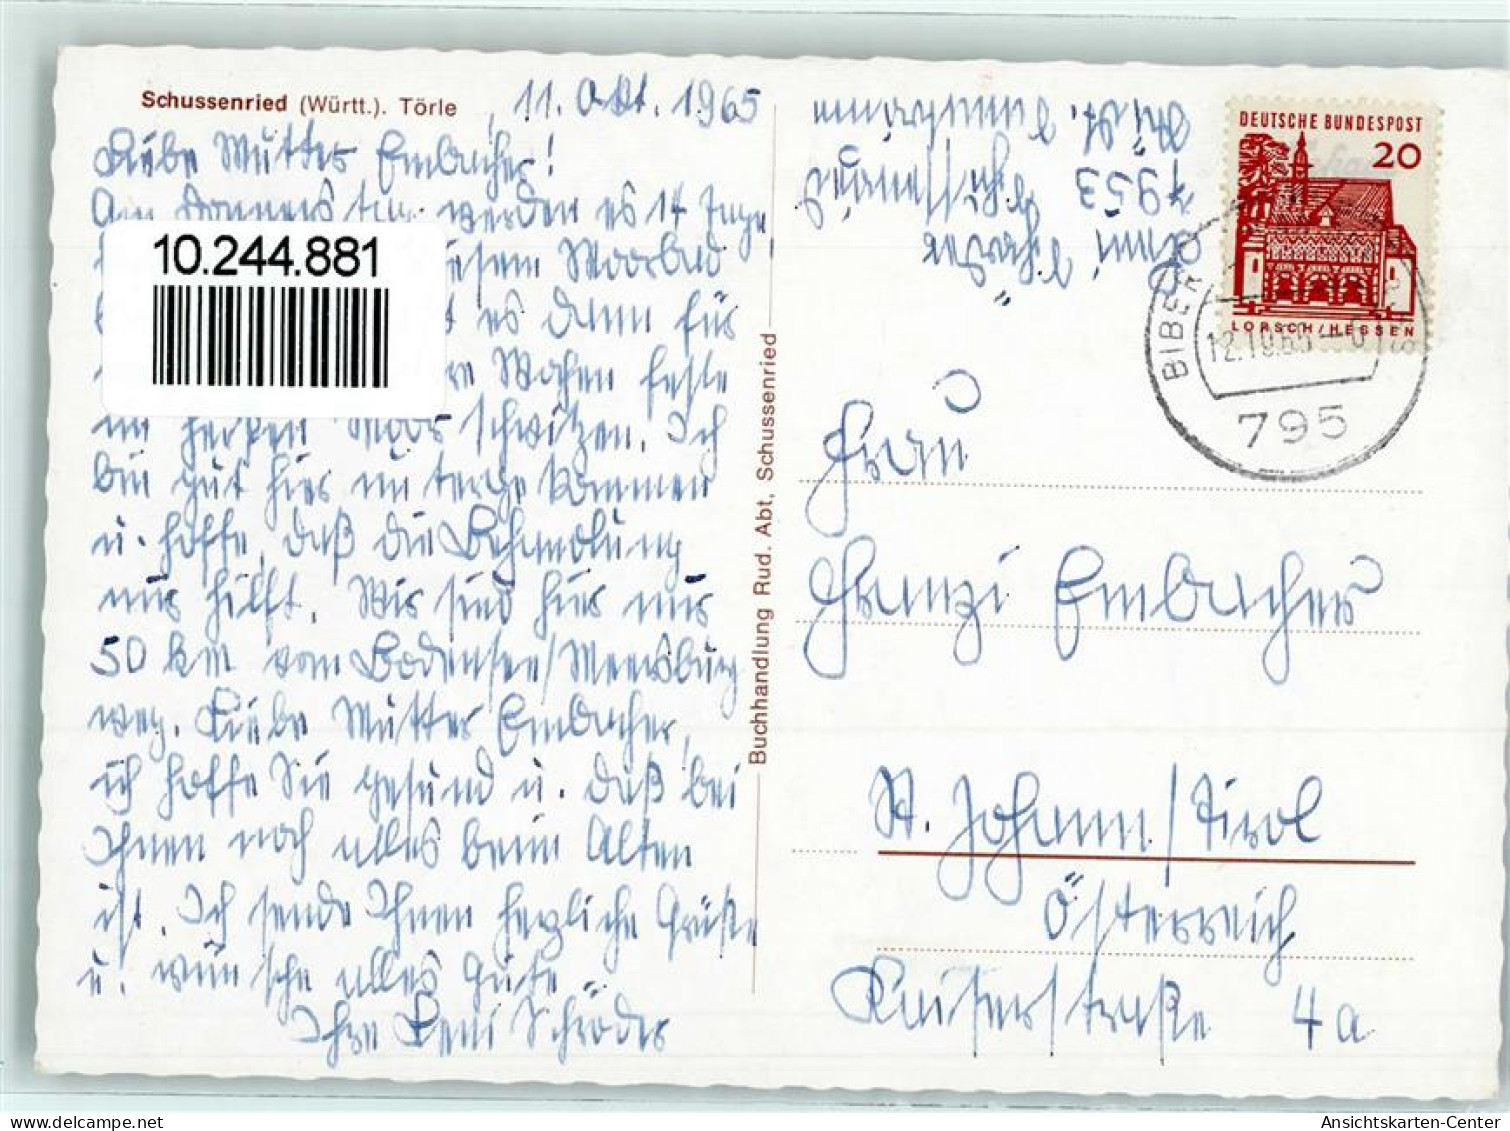 Schussenried (Württ.). Törle
11. Okt. 1965
Liebe Mutter Embacher!
Am Donnerstag werden es 14 Tage,
Moorbad
es dann für
Wochen feste
im heißen Moor schwitzen. Ich
bin gut hier untergekommen
u. hoffe, daß die Behandlung
mir hilft. Wir sind hier nur
50 km vom Bodensee/Meersburg
weg. Liebe Mutter Embacher,
ich hoffe Sie gesund u. daß bei
Ihnen noch alles beim Alten
ist. Ich sende Ihnen herzliche Grüße
u. wünsche alles Gute
Ihre Leni Schröder
10.244.881
Buchhandlung Rud. Abt, Schussenried
Leni Schröder
7953 Schussenried
DEUTSCHE BUNDESPOST
20
LORSCH/HESSEN
BIBER
12.10.65
795
Frau
Franzi Embacher
St. Johann/Tirol
Österreich
Kaiserstraße 4a
Ansichtskarten-Center